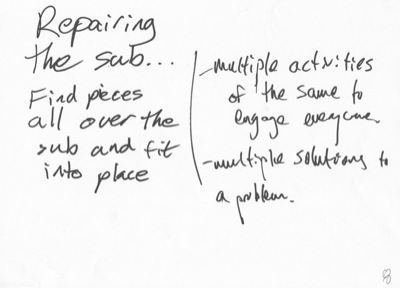 Repairing
the sub...
Find pieces
all over the
sub and fit
into place
- multiple activities
of the same to
engage everyone.
- multiple solutions to
a problem.
8